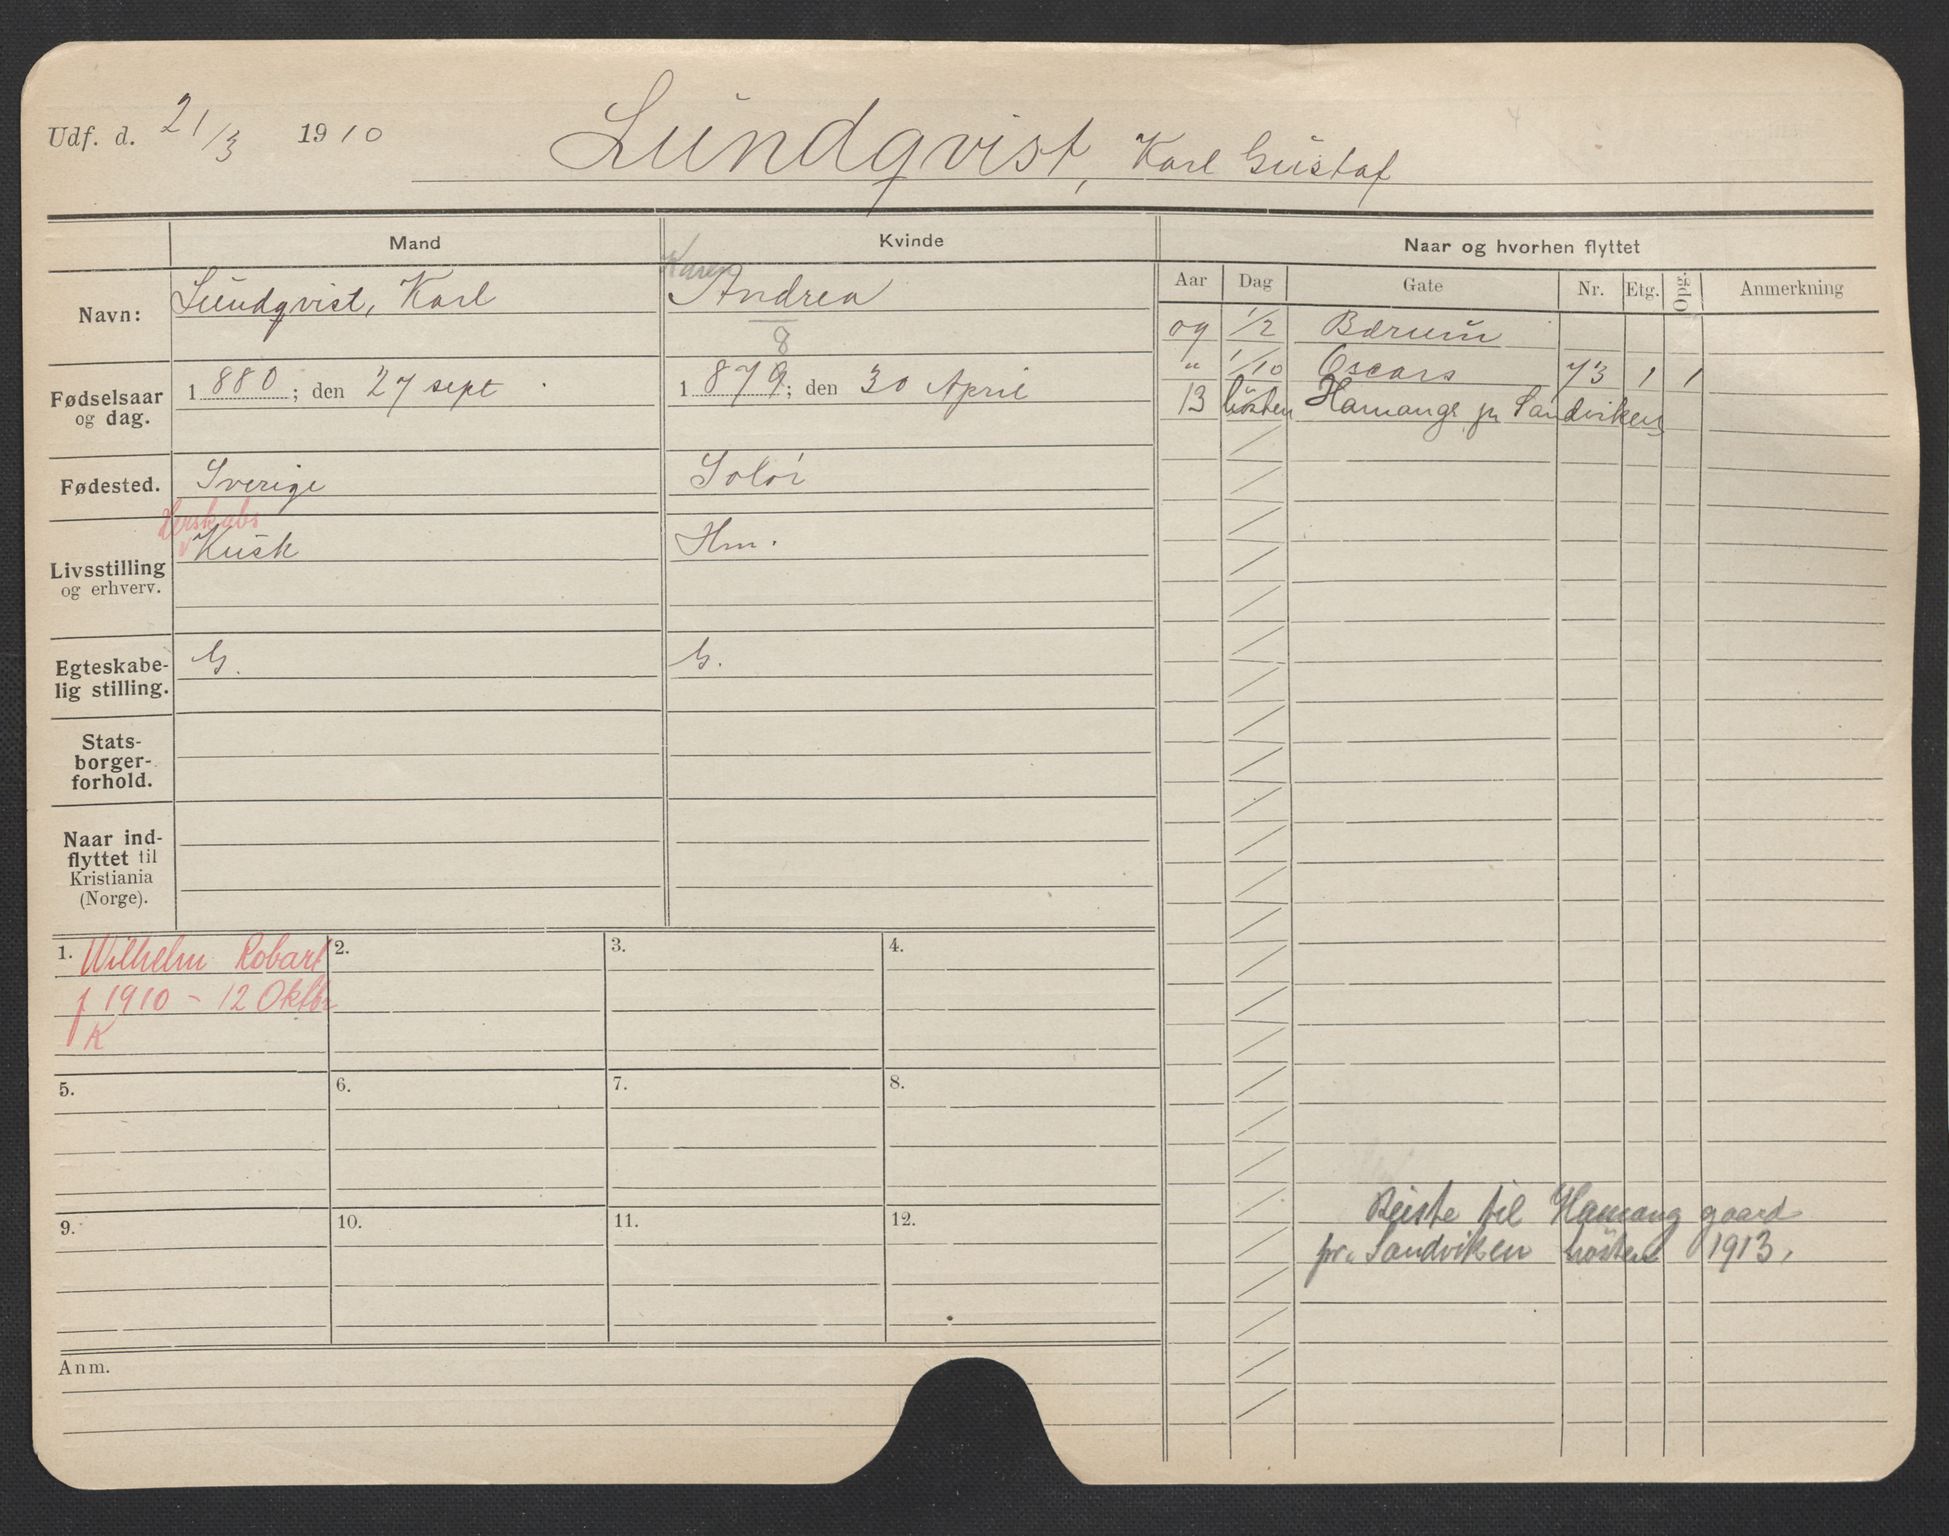 Udf. d. 21/3 1910 Lundqvist, Karl Gustaf
Mand Kvinde Naar og hvorhen flyttet
Aar Dag Gate Nr. Etg. Opg. Anmerkning
Navn: Lundqvist, Karl Karen Andrea
8
Fødselsaar og dag. 1 880 ; den 27 sept 1 879 ; den 30 April
Fødested. Sverige Solør
Herskabs
Livsstilling og erhverv. Kusk Hm.
Egteskabe-
lig stilling. G. G.
Stats-
borger-
forhold.
Naar ind-
flyttet til
Kristiania
(Norge).
09 1/2 Bærum
" 1/10 Oscars 73 1 1
13 høsten Hamang pr Sandviken
1. Wilhelm Robart 2. 3. 4.
f 1910 - 12 Oktbr
K
5. 6. 7. 8.
9. 10. 11. 12.
Reiste til Hamang gaard
pr. Sandviken høsten 1913.
Anm.